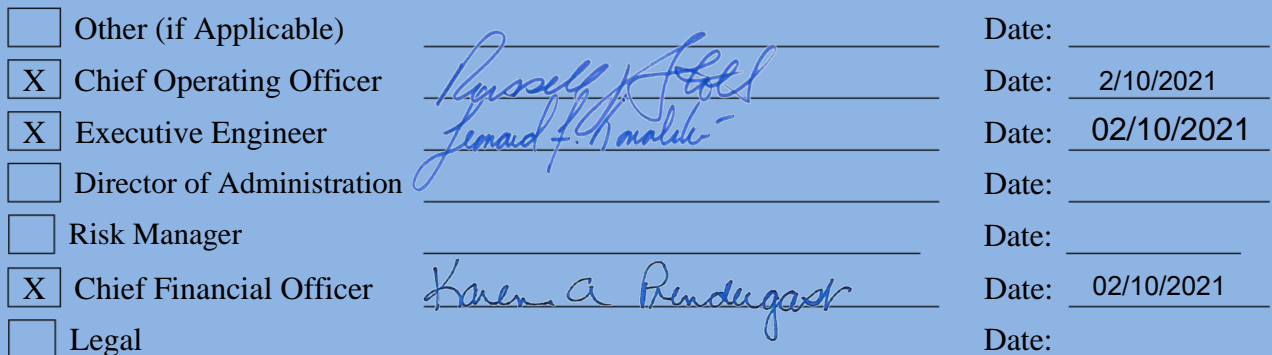 Other (if Applicable) Date:
X Chief Operating Officer Russell Date: 2/10/2021
X Executive Engineer Leonard F. Date: 02/10/2021
Director of Administration Date:
Risk Manager Date:
X Chief Financial Officer Karen A Prendergast Date: 02/10/2021
Legal Date: